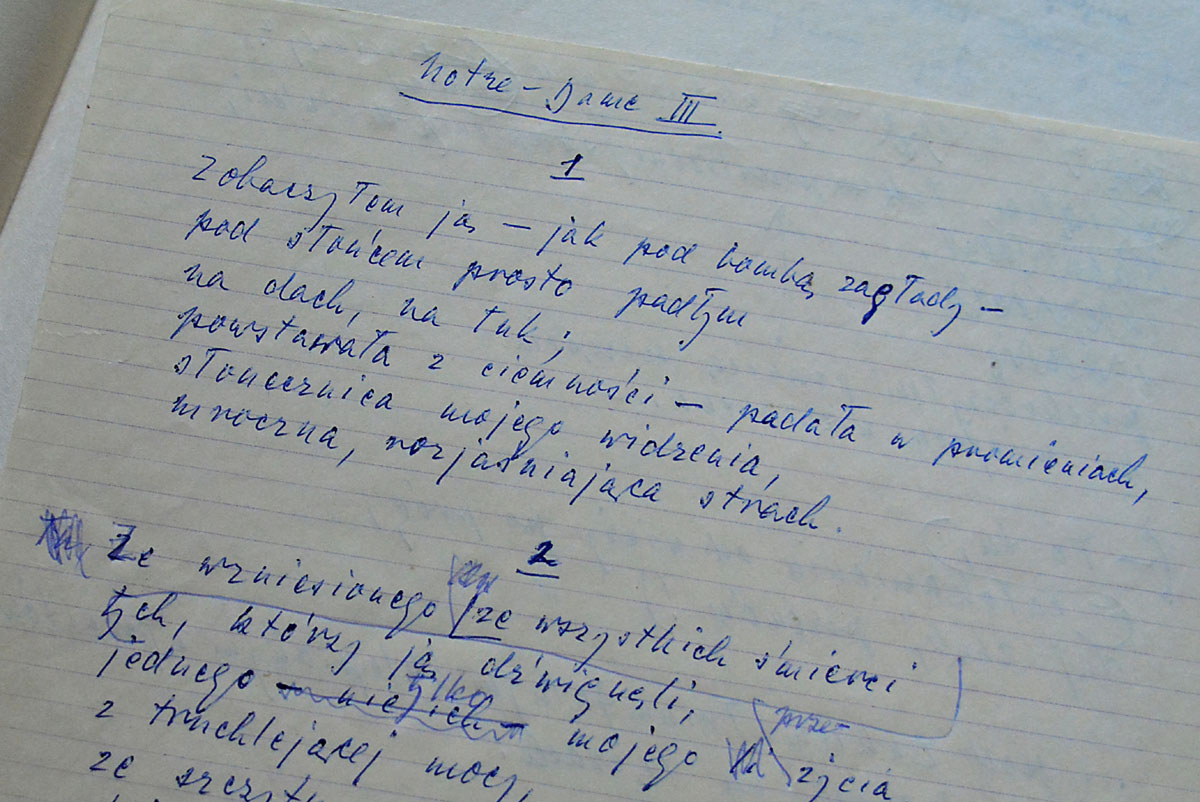 Notre-Dame III
1
Zobaczyłem ją – jak pod bombą zagłady –
pod słońcem prosto padłym
na dach, na łuk;
powstawała z ciemności – padała w promieniach,
słonecznica mojego widzenia,
mroczna, rozjaśniająca strach.
2
Ze wzniesionego ze wszystkich śmierci
tych, którzy ją dźwignęli,
jednego tylko mojego prze-życia
z truchlejącej mocy,
ze szczytu